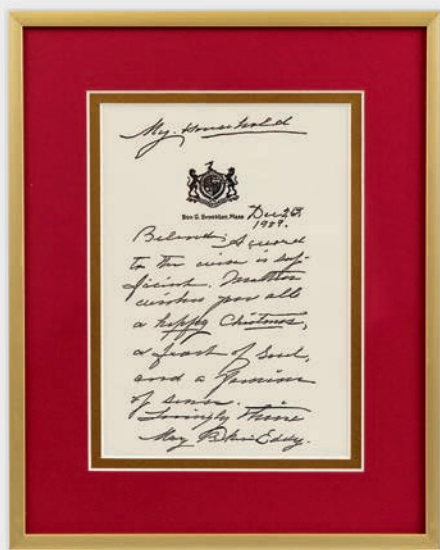 My Household
Box G, Brookline, Mass Dec 25,
1909.
Beloved: A word
to the wise is suf-
ficient. Mother
wishes you all
a happy Christmas,
a feast of Soul,
and a famine
of sense.
Lovingly thine
Mary Baker Eddy.